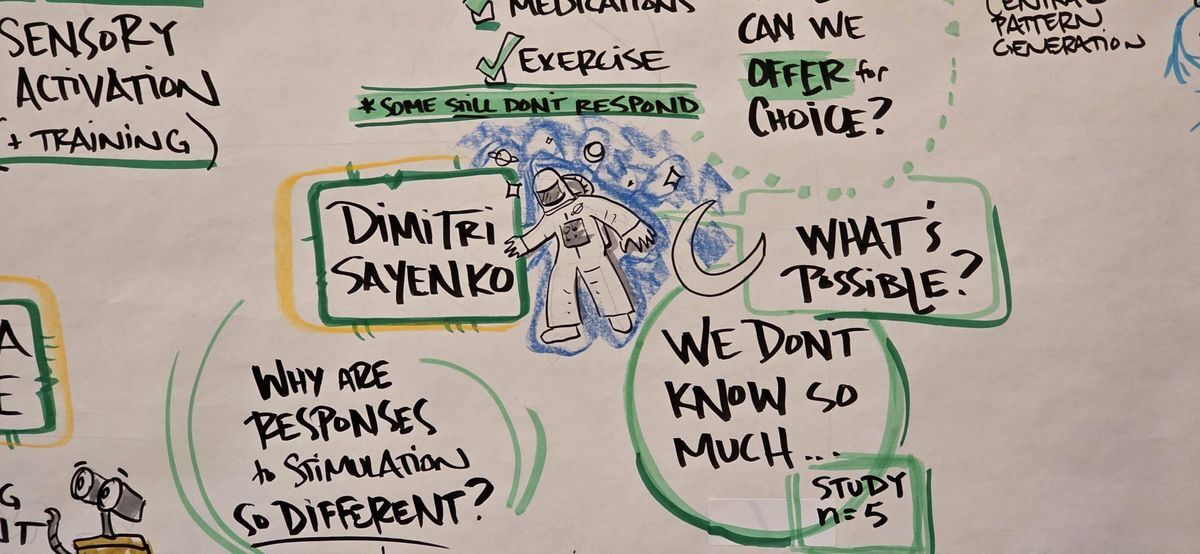 SENSORY
ACTIVATION
(+ TRAINING)
MEDICATIONS
EXERCISE
* SOME STILL DON'T RESPOND
CAN WE
OFFER for
CHOICE?
CENTRAL
PATTERN
GENERATION
DIMITRI
SAYENKO
WHAT'S
POSSIBLE?
WHY ARE
RESPONSES
to STIMULATION
SO DIFFERENT?
WE DONT
KNOW SO
MUCH...
STUDY
n=5
A
E
G
IT